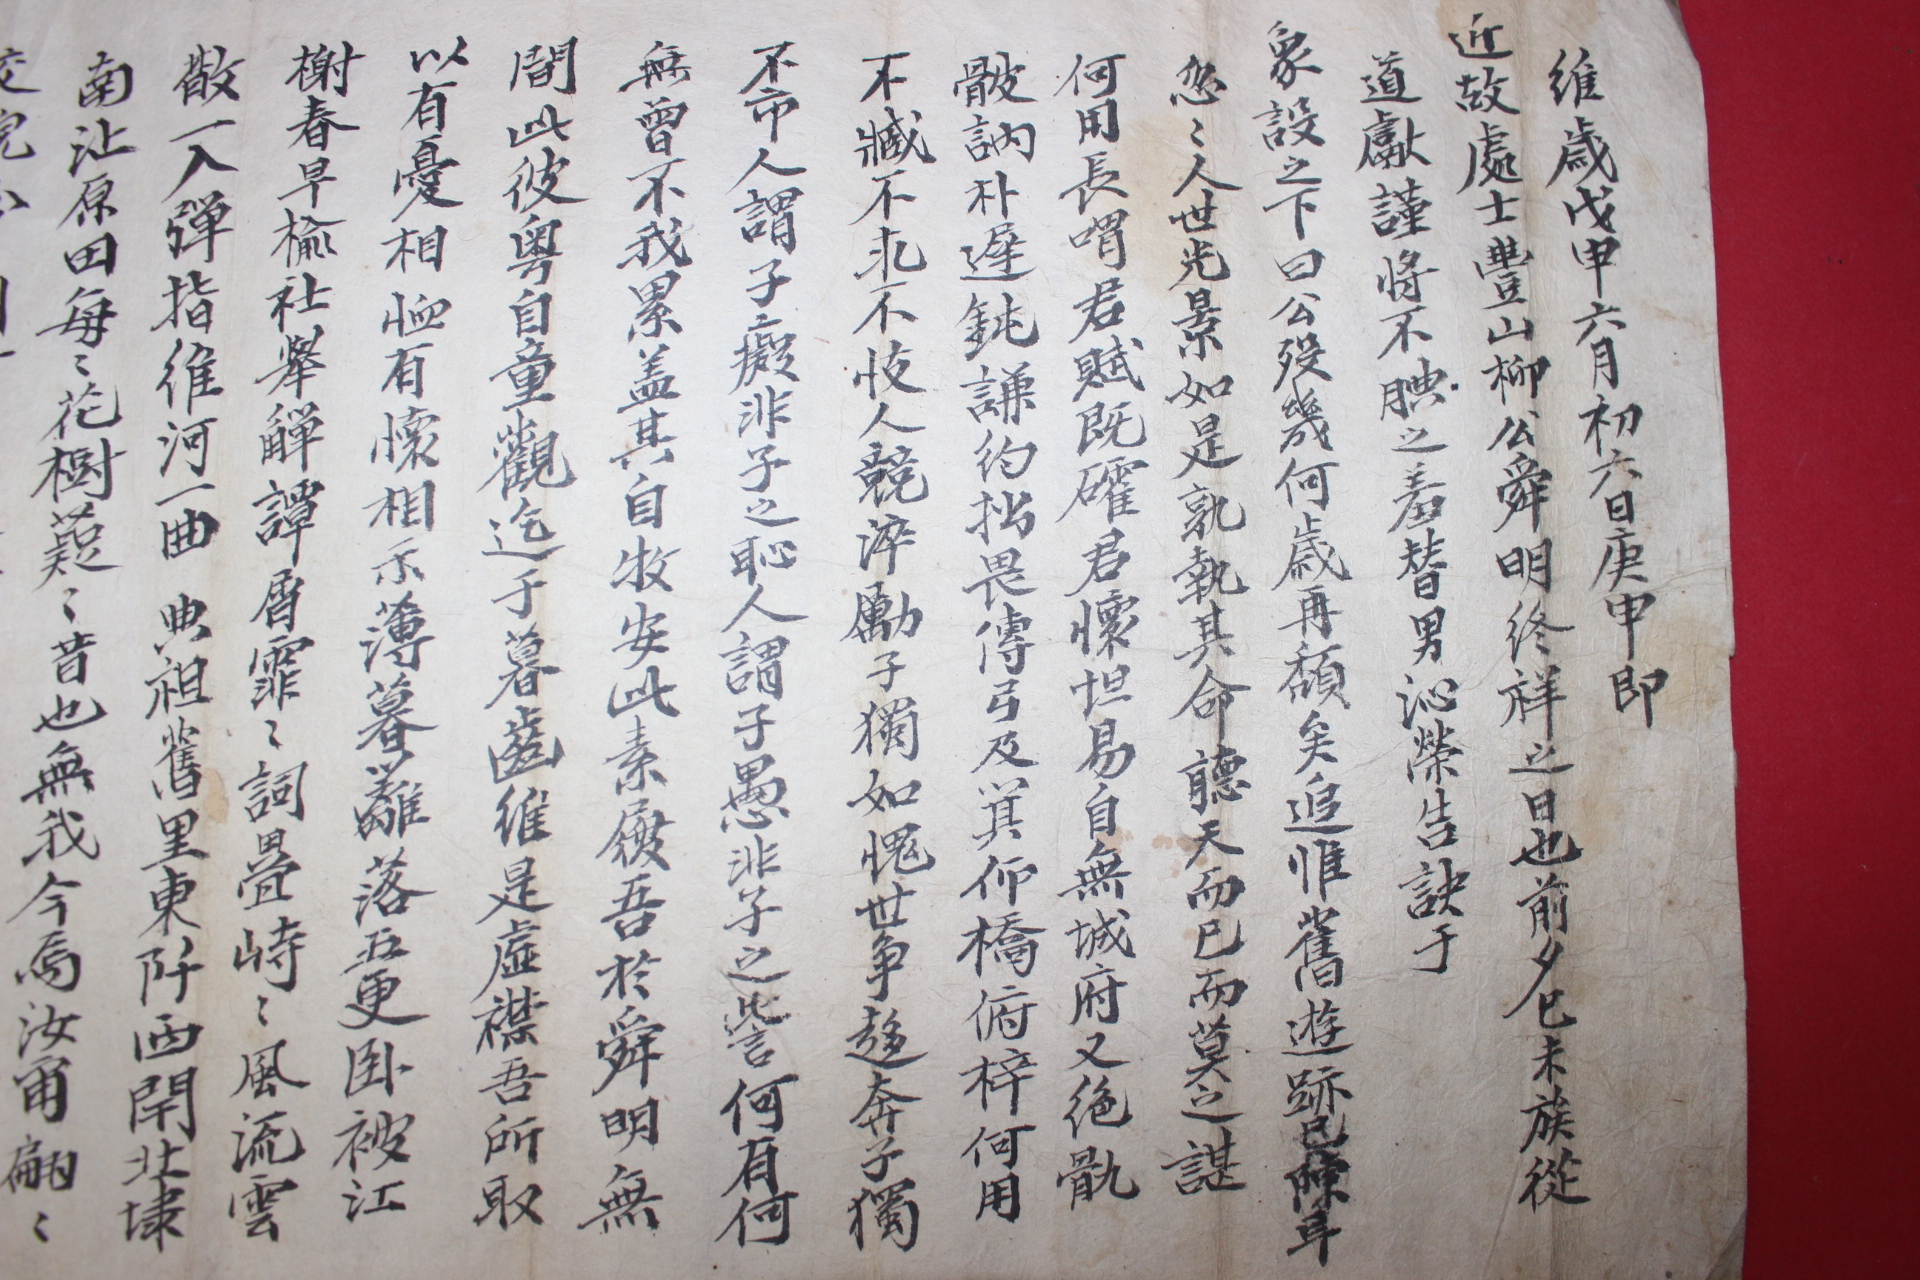 維歲戊申六月初六日庚申即
近故處士豊山柳公舜明終祥之日也前夕已未族從
道獻謹將不腆之羞替男沁榮告訣于
象設之下曰公歿幾何歲再頹矣追惟舊遊跡已陳耳
忽〻人世光景如是孰執其命聽天而已而莫之諶
何用長喟君賦既確君懷坦易自無城府又絶骩
骳訥朴遲鈍謙約拙畏傳弓及箕仰橋俯梓何用
不臧不求不忮人競淬勵子獨如愧世爭趍奔子獨
不市人謂子癡非子之恥人謂子愚非子之訾何有何
無曾不我累盖其自牧安此素履吾於舜明無
間此彼粤自童觀迄于暮齒維是虛襟吾所取
以有憂相恤有懷相示薄暮離落五更臥被江
榭春早楡社擧觶譚屑霏〻詞疊峙〻風流雲
散一入彈指維河一曲典祖舊里東阡西閈北埭
南沚原田每〻花樹薿〻昔也無我今焉汝甯翩〻